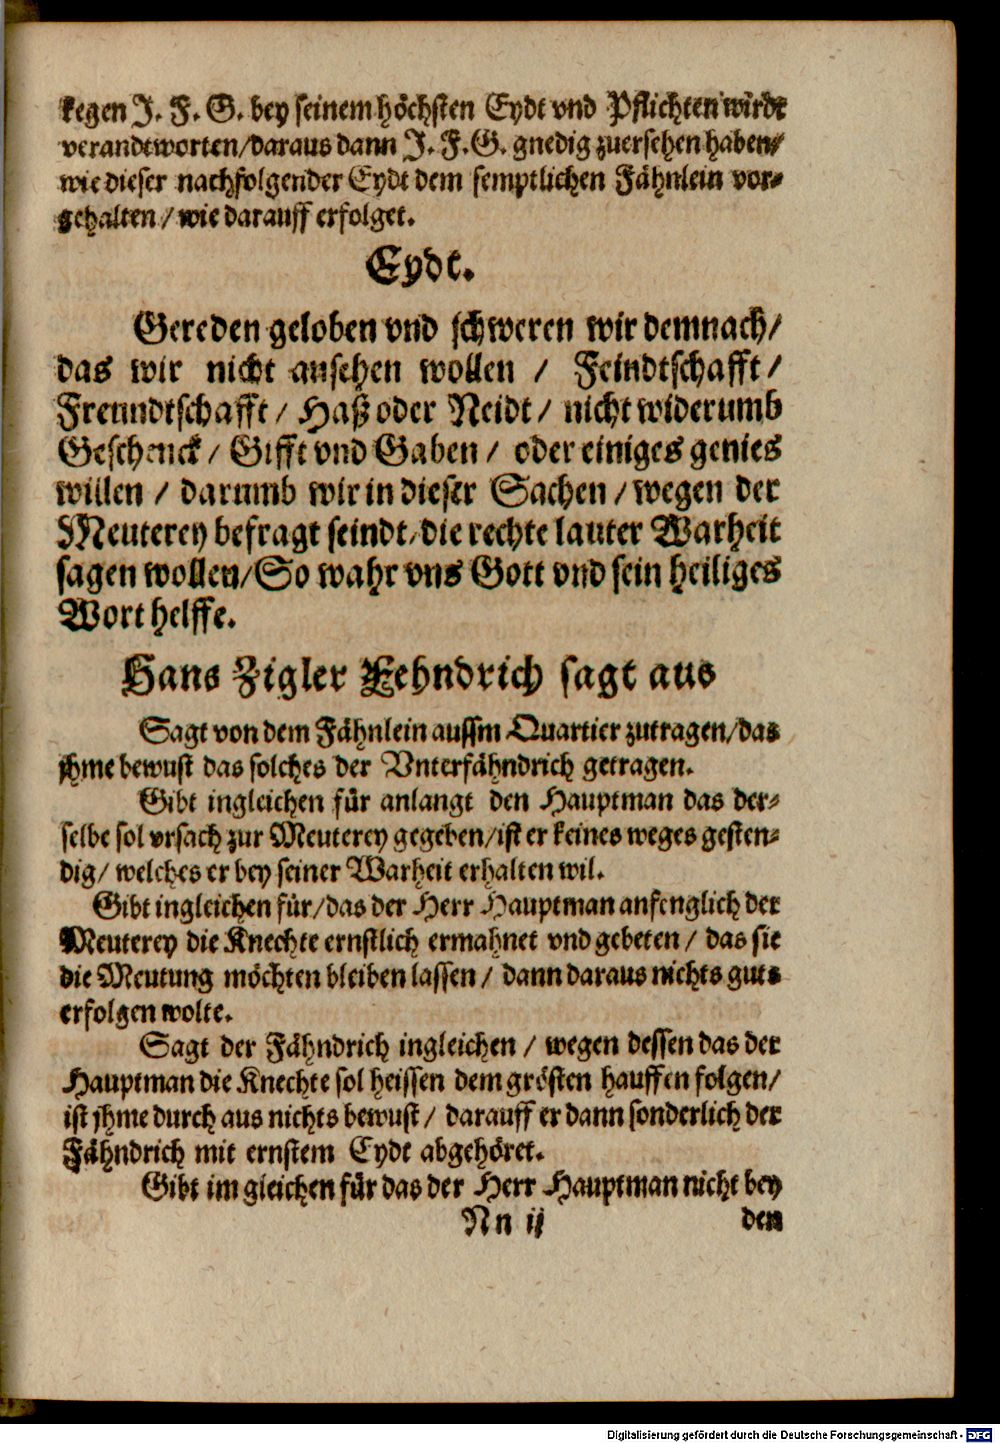 kegen J. F. G. bey seinem höchsten Eydt vnd Pflichten wirdt
verandtworten/daraus dann J. F. G. gnedig zuersehen haben/
wie dieser nachfolgender Eydt dem semptlichen Fähnlein vor-
gehalten/ wie darauff erfolget.
Eydt.
Gereden geloben vnd schweren wir demnach/
das wir nicht ansehen wollen / Feindtschafft/
Freundtschafft/ Haß oder Neidt/ nicht widerumb
Geschenck/ Gifft vnd Gaben/ oder einiges genies
willen / darumb wir in dieser Sachen/ wegen der
Meuterey befragt seindt/die rechte lauter Warheit
sagen wollen/So wahr vns Gott vnd sein heiliges
Wort helffe.
Hans Zigler Fehndrich sagt aus
Sagt von dem Fähnlein aussm Quartier zutragen/das
jhme bewust das solches der Vnterfähndrich getragen.
Gibt ingleichen für anlangt den Hauptman das der-
selbe sol vrsach zur Meuterey gegeben/ist er keines weges gesten-
dig/ welches er bey seiner Warheit erhalten wil.
Gibt ingleichen für/das der Herr Hauptman anfenglich der
Meuterey die Knechte ernstlich ermahnet vnd gebeten/ das sie
die Meutung möchten bleiben lassen/ dann daraus nichts guts
erfolgen wolte.
Sagt der Fähndrich ingleichen / wegen dessen das der
Hauptman die Knechte sol heissen dem grösten hauffen folgen/
ist jhme durch aus nichts bewust/ darauff er dann sonderlich der
Fähndrich mit ernstem Eydt abgehöret.
Gibt im gleichen für das der Herr Hauptman nicht bey
Nn ij den
Digitalisierung gefördert durch die Deutsche Forschungsgemeinschaft - DFG